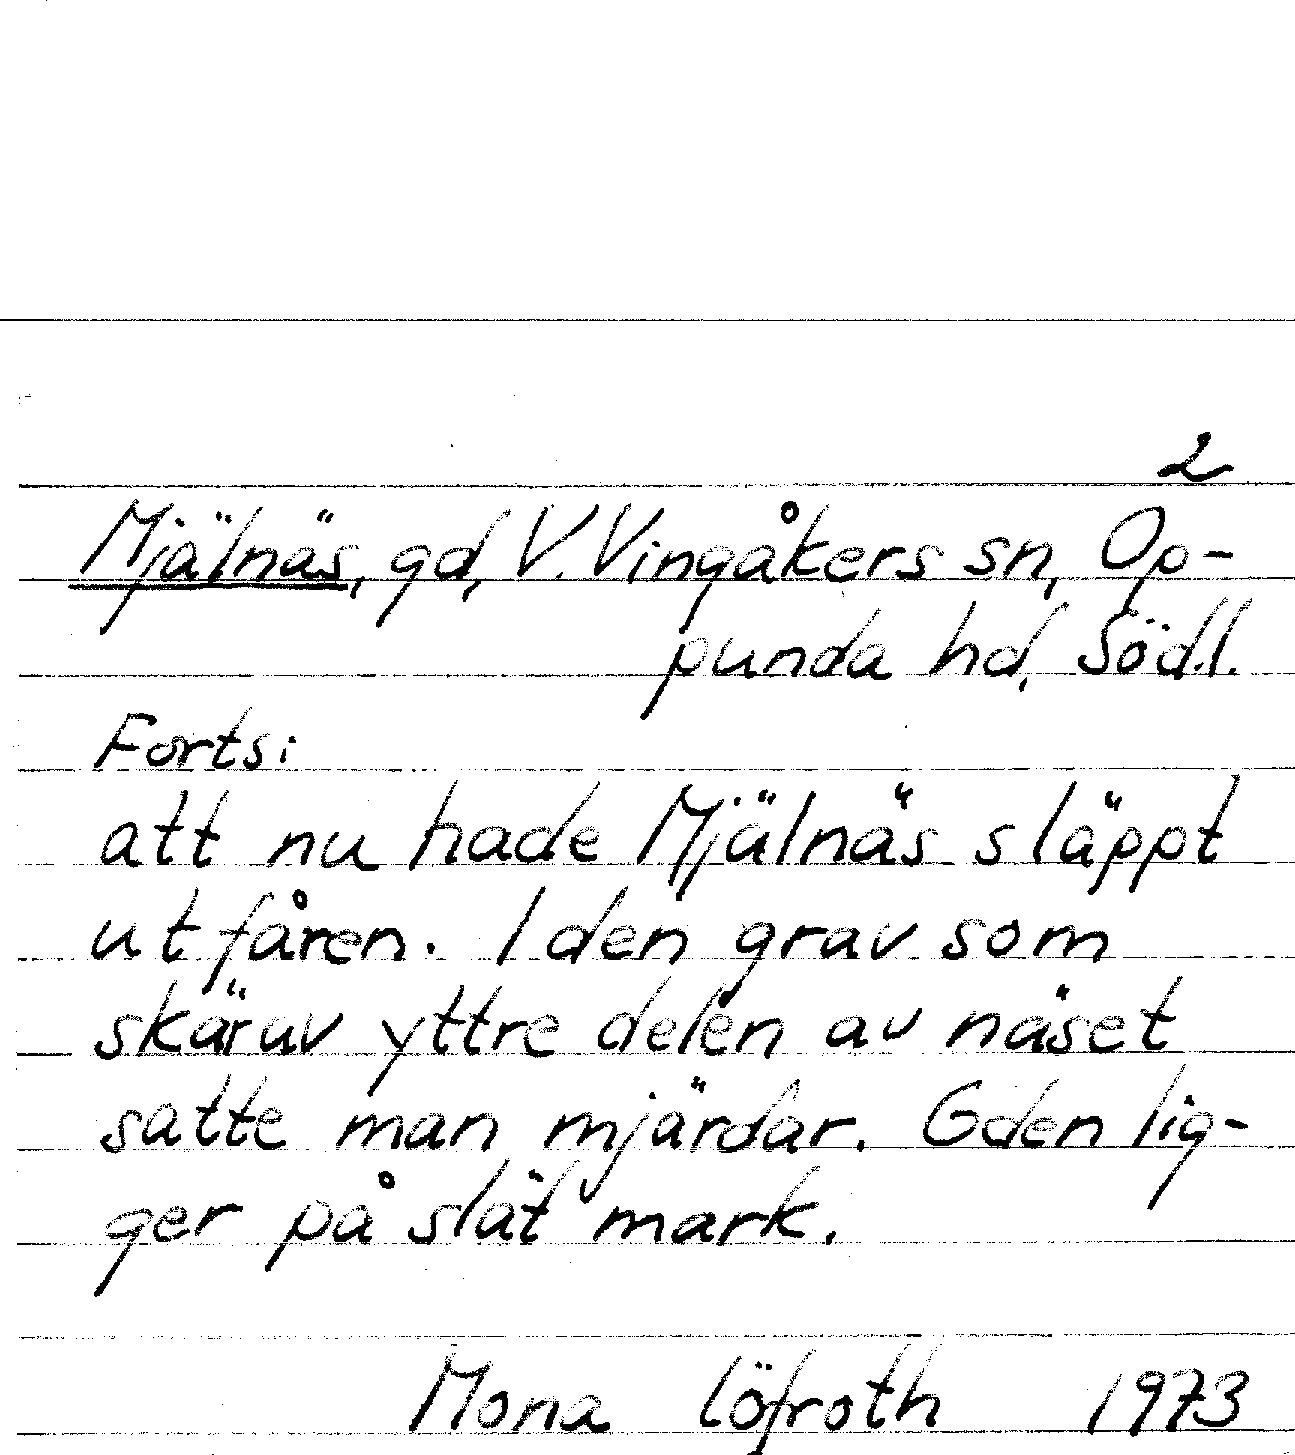 2
Mjälnäs, gd, V. Vingåkers sn, Op-
punda hd, Södl.
Forts:
att nu hade Mjälnäs släppt
ut fåren. I den grav som
skär av yttre delen av näset
satte man mjärdar. Gden lig-
ger på slät mark.
Mona Löfroth 1973